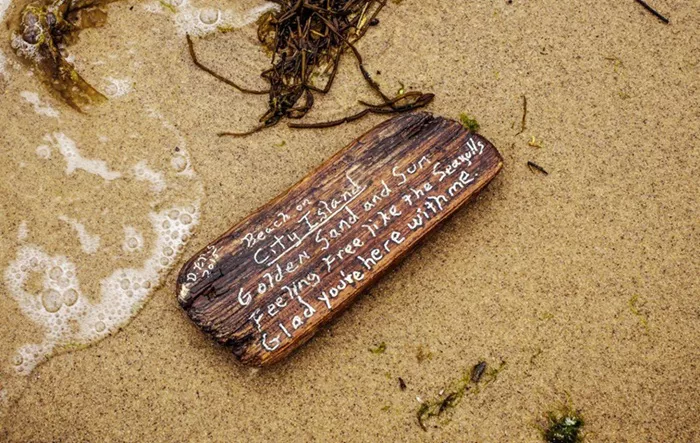 Beach on
City Island
Golden Sand and Sun
Feeling Free like the Seagulls
Glad you're here with me.